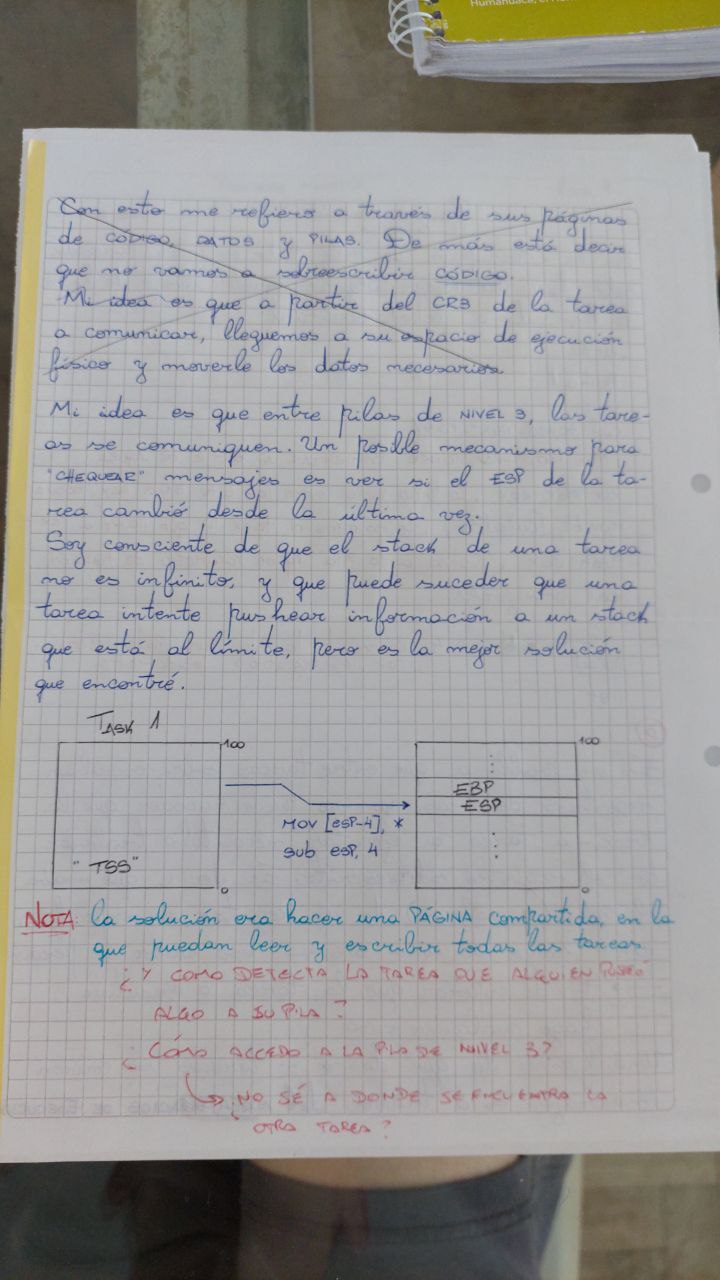 Humahuaca, el
Con esto me refiero a través de sus páginas
de CÓDIGO, DATOS y PILAS. De más está decir
que no vamos a sobreescribir CÓDIGO.
Mi idea es que a partir del CR3 de la tarea
a comunicar, lleguemos a su espacio de ejecución
físico y moverle los datos necesarios.
Mi idea es que entre pilas de NIVEL 3, las tare-
as se comuniquen. Un posible mecanismo para
"CHEQUEAR" mensajes es ver si el ESP de la ta-
rea cambió desde la última vez.
Soy consciente de que el stack de una tarea
no es infinito, y que puede suceder que una
tarea intente pushear información a un stack
que está al límite, pero es la mejor solución
que encontré.
TASK 1
100
100
EBP
ESP
MOV [ESP-4], *
SUB ESP, 4
"TSS"
0
0
NOTA: la solución era hacer una PÁGINA compartida, en la
que puedan leer y escribir todas las tareas
¿Y COMO DETECTA LA TAREA QUE ALGUIEN PUSEÓ
ALGO A SU PILA?
¿CÓMO ACCEDO A LA PILA DE NIVEL 3?
↳ ¿NO SÉ A DONDE SE ENCUENTRA LA
OTRA TAREA?